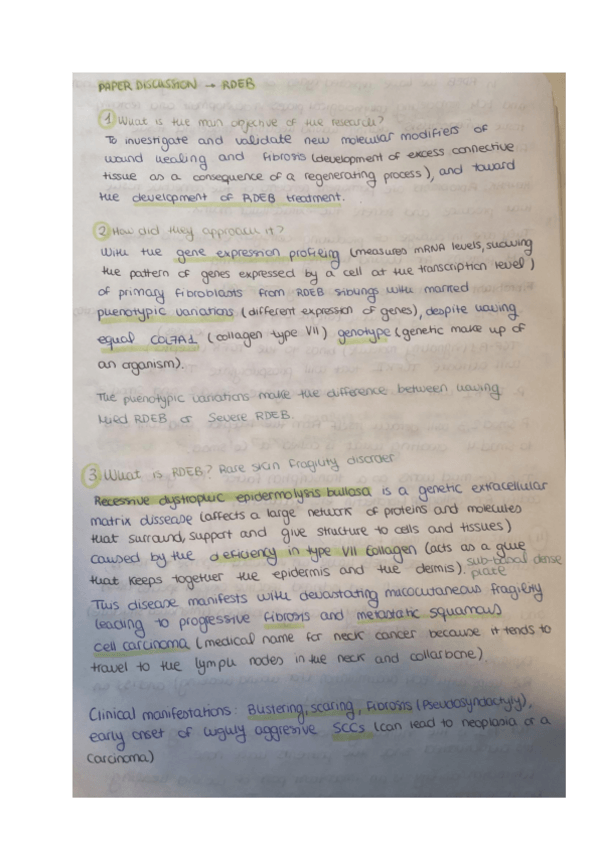 PAPER DISCUSSION → RDEB
1 What is the main objective of the research?
To investigate and validate new molecular modifiers of
wound healing and fibrosis (development of excess connective
tissue as a consequence of a regenerating process), and toward
the development of RDEB treatment.
2 How did they approach it?
With the gene expression profiling (measures mRNA levels, showing
the pattern of genes expressed by a cell at the transcription level)
of primary fibroblasts from RDEB siblings with marked
phenotypic variations (different expression of genes), despite having
equal COL7A1 (collagen type VII) genotype (genetic make up of
an organism).
The phenotypic variations make the difference between having
Mild RDEB or Severe RDEB.
3 What is RDEB? Rare skin fragility disorder
Recessive dystrophic epidermolysis bullosa is a genetic extracellular
matrix dissease (affects a large network of proteins and molecules
that surround, support and give structure to cells and tissues)
caused by the deficiency in type VII collagen (acts as a glue
that keeps together the epidermis and the dermis). sub-basal dense
plate
This disease manifests with devastating mucocutaneous fragility
leading to progressive fibrosis and metastatic squamous
cell carcinoma (medical name for neck cancer because it tends to
travel to the lymph nodes in the neck and collarbone).
Clinical manifestations: Blistering, scaring, Fibrosis (Pseudosyndactyly),
early onset of highly aggressive SCCs (can lead to neoplasia or a
carcinoma)